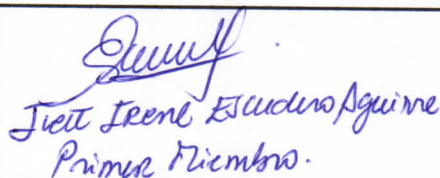 Ivett Irene Escudero Aguirre
Primer Miembro.